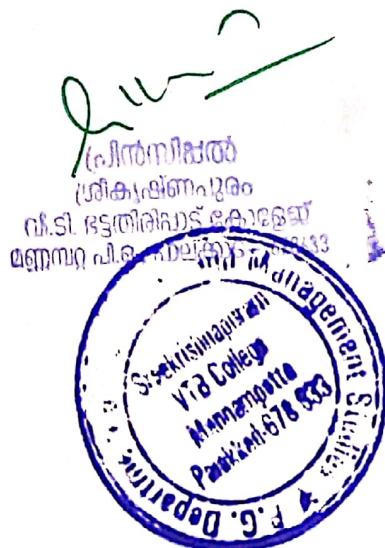 പ്രിൻസിപ്പൽ
ശ്രീകൃഷ്ണപുരം
വി.ടി. ഭട്ടതിരിപ്പാട് കോളേജ്
മണ്ണമ്പറ്റ പി.ഒ. പാലക്കാട് 33
Management Studies ★ P.G. Department
Sreekrishnapuram
VTB College
Mannampatta
Palakkad-678 633